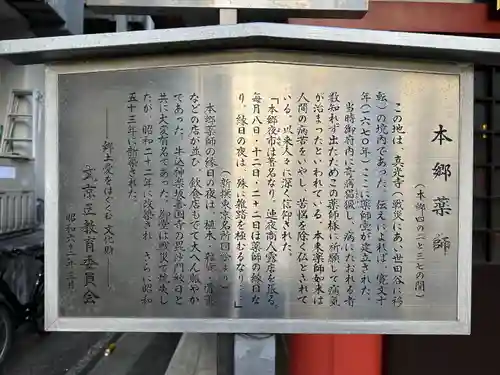 本郷薬師
(本郷四の二と三七の間)
この地は、真光寺(戦災にあい世田谷に移
転)の境内であった。伝えによれば、寛文十
年(一六七〇年)ここに薬師堂が建立された。
当時御府内に奇病猖獗し、病にたおれる者
数知れず出たためこの薬師様に祈願して病気
が治まったといわれている。本来薬師如来は
人間の病苦をいやし、苦悩を除く仏とされて
いる。以来人々に深く信仰された。
「本郷夜市は著名なり、連夜商人露店を張る。
毎月八日・十二日・二十二日は薬師の縁日な
り、縁日の夜は、殊に雑踏を極むるなり…」
(新撰東京名所図会より)
本郷薬師の縁日の夜は、植木・雑貨・骨董
などの店が並び、飲食店もでて大へん賑やか
であった。牛込神楽坂善国寺の毘沙門縁日と
共に大変有名であった。御堂は戦災で焼失し
たが、昭和二十二年に改築され、さらに昭和
五十三年に新築された。
―郷土愛をはぐくむ文化財―
文京区教育委員会
昭和六十一年三月